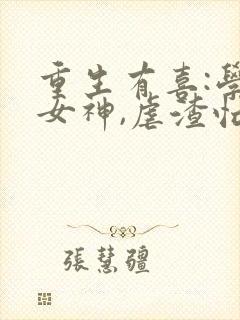 重生有喜:學
女神,虐渣忙
張慧疆